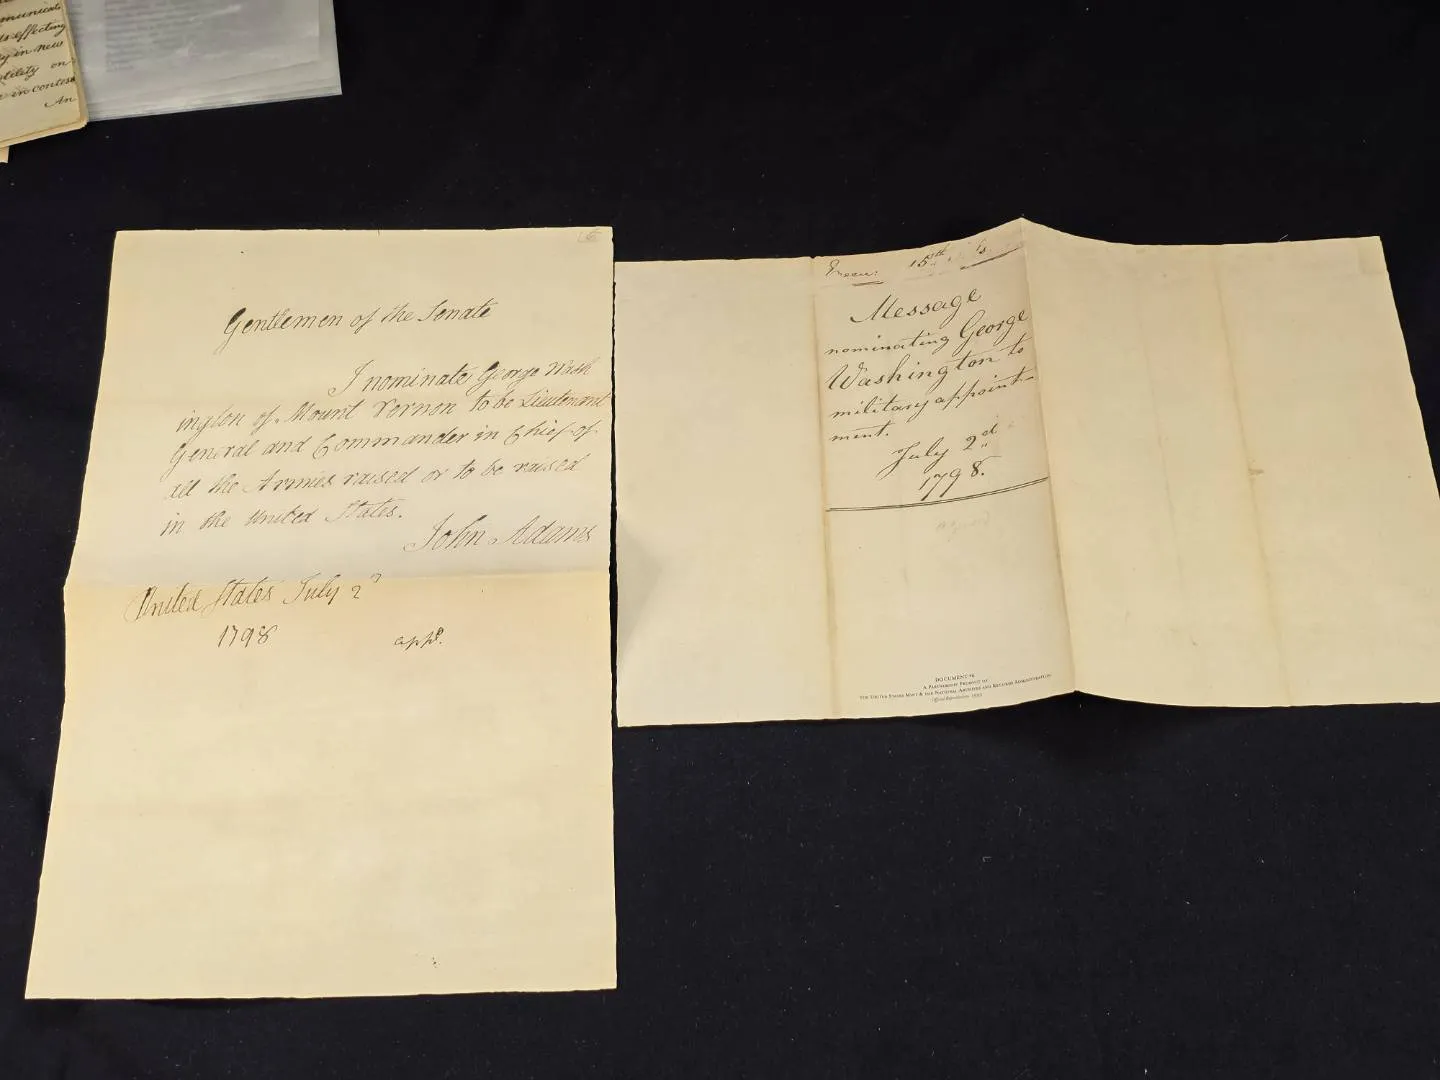 municate
effecting
in new
on
in contest
An
Gentlemen of the Senate
I nominate George Wash
ington of Mount Vernon to be Lieutenant
General and Commander in Chief of
all the Armies raised or to be raised
in the United States.
John Adams
United States July 2d
1798
appd.
15th
Message
nominating George
Washington to
military appoint-
ment.
July 2d
1798.
DOCUMENT #6
A PARTNERSHIP PRODUCT OF
THE UNITED STATES MINT & THE NATIONAL ARCHIVES AND RECORDS ADMINISTRATION